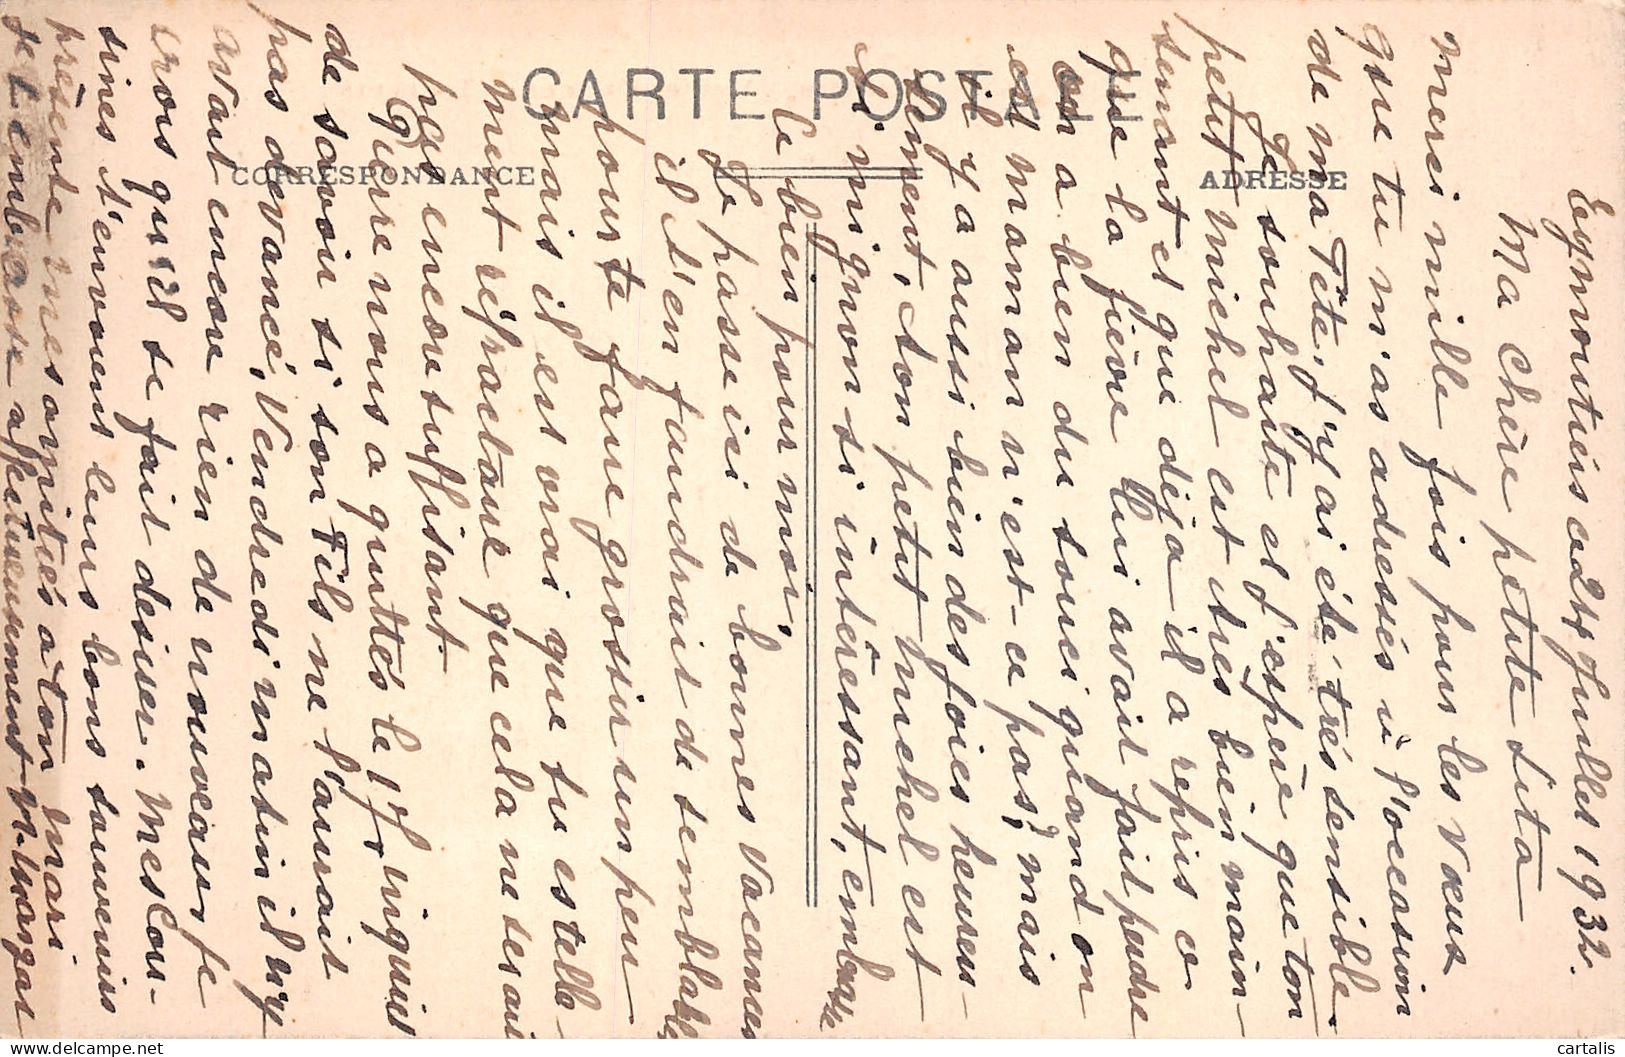 CARTE POSTALE
CORRESPONDANCE
ADRESSE
Eymoutiers ce 24 Juillet 1932.
Ma chère petite Lita
merci mille fois pour les vœux
que tu m'as adressés à l'occasion
de ma Fête, j'y ai été très sensible.
Je souhaite et j'espère que ton
petit Michel est très bien main-
tenant et que déjà il a repris ce
que la fièvre lui avait fait perdre
on a bien du souci quand on
est maman n'est-ce pas, mais
il y a aussi bien des joies heureu-
sement, ton petit Michel est
si mignon si intéressant, embrasse
le bien pour moi,
Je passe ici de bonnes vacances
il t'en faudrait de semblables
pour te faire grossir un peu
mais il est vrai que tu es telle-
ment réfractaire que cela ne serait
pas encore suffisant.
Pierre nous a quittés le 17, inquiet
de savoir si son Fils ne l'aurait
pas devancé, Vendredi matin il n'y
avait encore rien de nouveau je
crois qu'il se fait désirer. Mes Cou-
sines t'envoient leurs bons souvenirs
présente mes amitiés à ton mari
je t'embrasse affectueusement